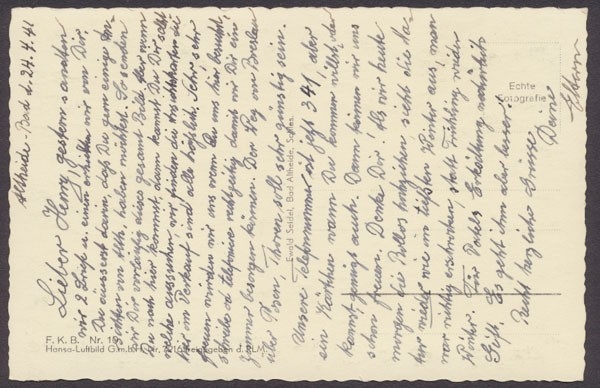 Altheide-Bad d. 24.4.41
Lieber Henry! gestern sandten
wir 2 Briefe u. einen erhielten wir von Dir.
Du äusserst darin, daß Du gern einige An-
sichten von Alth. haben möchtest. So senden
wir Dir vorläufig dies gesamt Bild. Aber wenn
du nach hier kommst, dann kannst Du Dir selbst
welche aussuchen, wir finden die Ansichtskarten die
hier im Verkauf sind alle häßlich. Sehr sehr
freuen würden wir uns wenn Du uns hier besuchst
schreibe od telefoniere rechtzeitig damit wir Dir ein
Zimmer besorgen können. Der Weg von Breslau
über Posen Thoren soll sehr günstig sein.
Unsere Telefonnummer ist jetzt 341, aber
ein Kärtchen wann Du kommen willst
kannst, genügt auch. Dann können wir uns
schon freuen. Denke Dir! Als wir heute
morgen die Rollos hochziehen sieht die Na-
tur wieder wie im tiefsten Winter aus, man
war richtig erschrocken, statt Frühling wieder
Winter. Für Vatis Erkältung natürlich
Gift. Es geht ihm aber besser.
Recht herzliche Grüsse
Deine
Eltern
Echte
Fotografie
Ewald Seidel, Bad Altheide, Schles.
F. K. B. Nr.
Hansa-Luftbild G.m.b.H. d. RLM